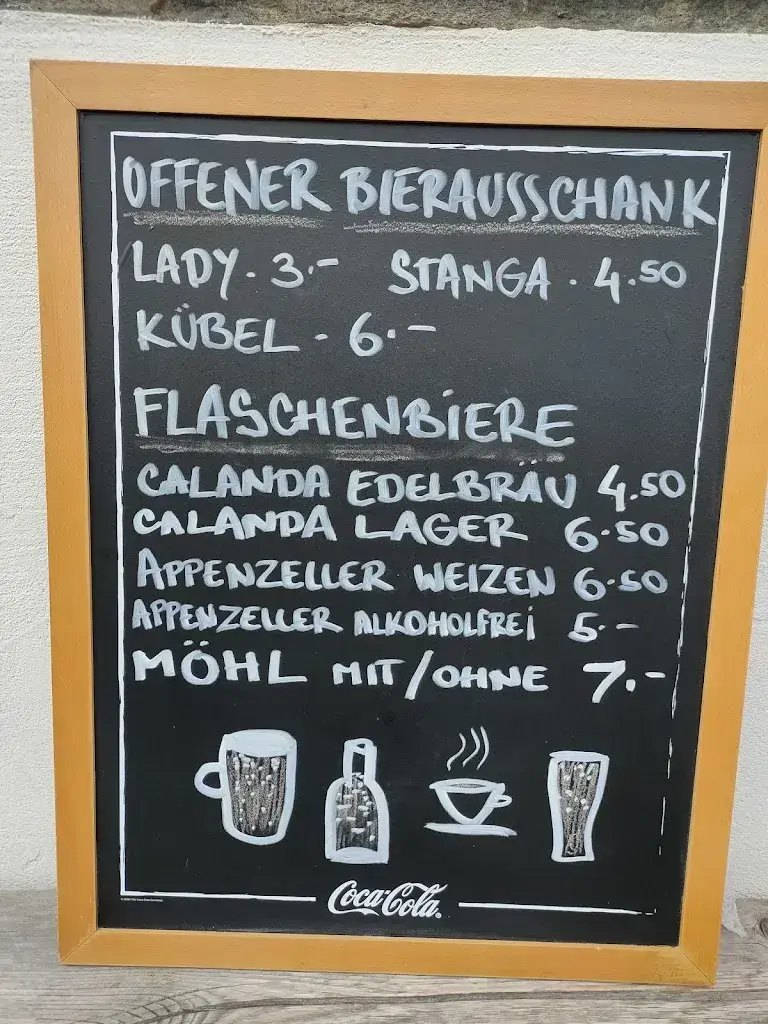 OFFENER BIERAUSSCHANK
LADY - 3.- STANGA . 4.50
KÜBEL - 6.-
FLASCHENBIERE
CALANDA EDELBRÄU 4.50
CALANDA LAGER 6.50
APPENZELLER WEIZEN 6.50
APPENZELLER ALKOHOLFREI 5.-
MÖHL MIT/OHNE 7.-
Coca-Cola